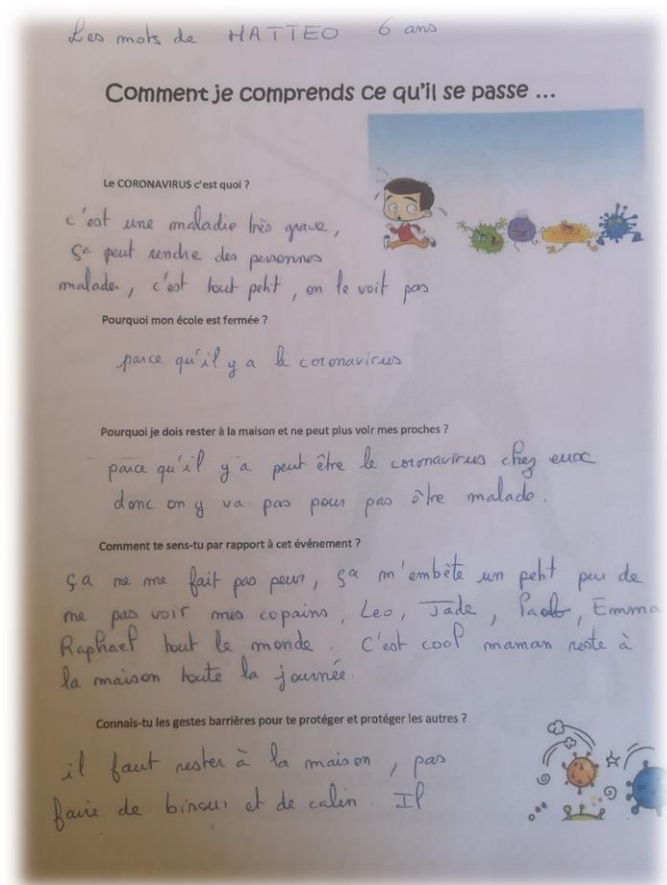 Les mots de MATTEO 6 ans
Comment je comprends ce qu'il se passe ...
Le CORONAVIRUS c'est quoi ?
c'est une maladie très grave,
ça peut rendre des personnes
malades, c'est tout petit, on le voit pas
Pourquoi mon école est fermée ?
parce qu'il y a le coronavirus
Pourquoi je dois rester à la maison et ne peut plus voir mes proches ?
parce qu'il y a peut être le coronavirus chez eux
donc on y va pas pour pas être malade.
Comment te sens-tu par rapport à cet événement ?
ça ne me fait pas peur, ça m'embête un petit peu de
me pas voir mes copains, Leo, Jade, Paolo, Emma
Raphael tout le monde. C'est cool maman reste à
la maison toute la journée.
Connais-tu les gestes barrières pour te protéger et protéger les autres ?
il faut rester à la maison, pas
faire de bisous et de calin. Il